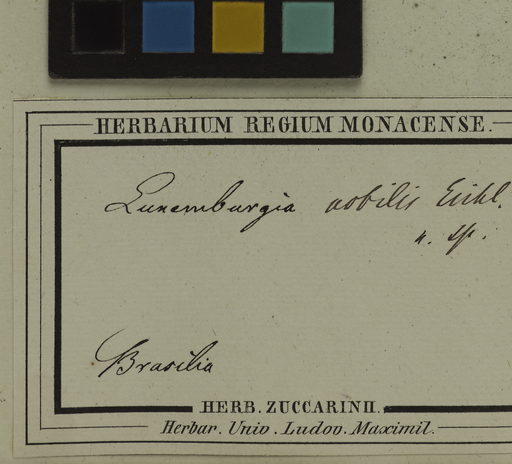 HERBARIUM REGIUM MONACENSE.
Luxemburgia nobilis Eichl.
n. sp.
Brasilia
HERB. ZUCCARINII.
Herbar. Univ. Ludov. Maximil.